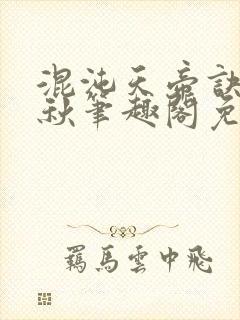 混沌天帝訣
秋筆趣閣免
羈馬雲中飛